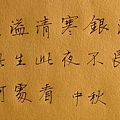 溢清寒銀
生此夜不長
何處看 中秋